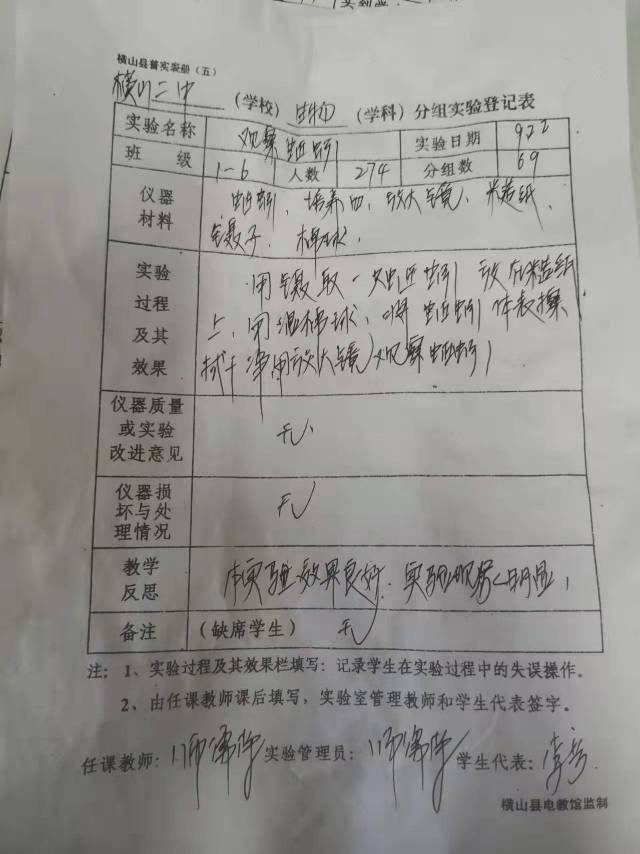 横山县普实表册（五）
横山二中（学校）生物（学科）分组实验登记表
实验名称 观察蚯蚓 实验日期 9.22
班级 1-6 人数 274 分组数 69
仪器材料 蚯蚓、培养皿、放大镜、糙纸、
镊子、棉球、
实验过程及其效果 用镊取一只蚯蚓放在糙纸
上，用湿棉球，将蚯蚓体表擦
拭干净用放大镜观察蚯蚓
仪器质量或实验改进意见 无
仪器损坏与处理情况 无
教学反思 本实验效果良好. 实验现象明显
备注 （缺席学生） 无
注：1、实验过程及其效果栏填写：记录学生在实验过程中的失误操作。
2、由任课教师课后填写，实验室管理教师和学生代表签字。
任课教师： 实验管理员： 学生代表：
横山县电教馆监制